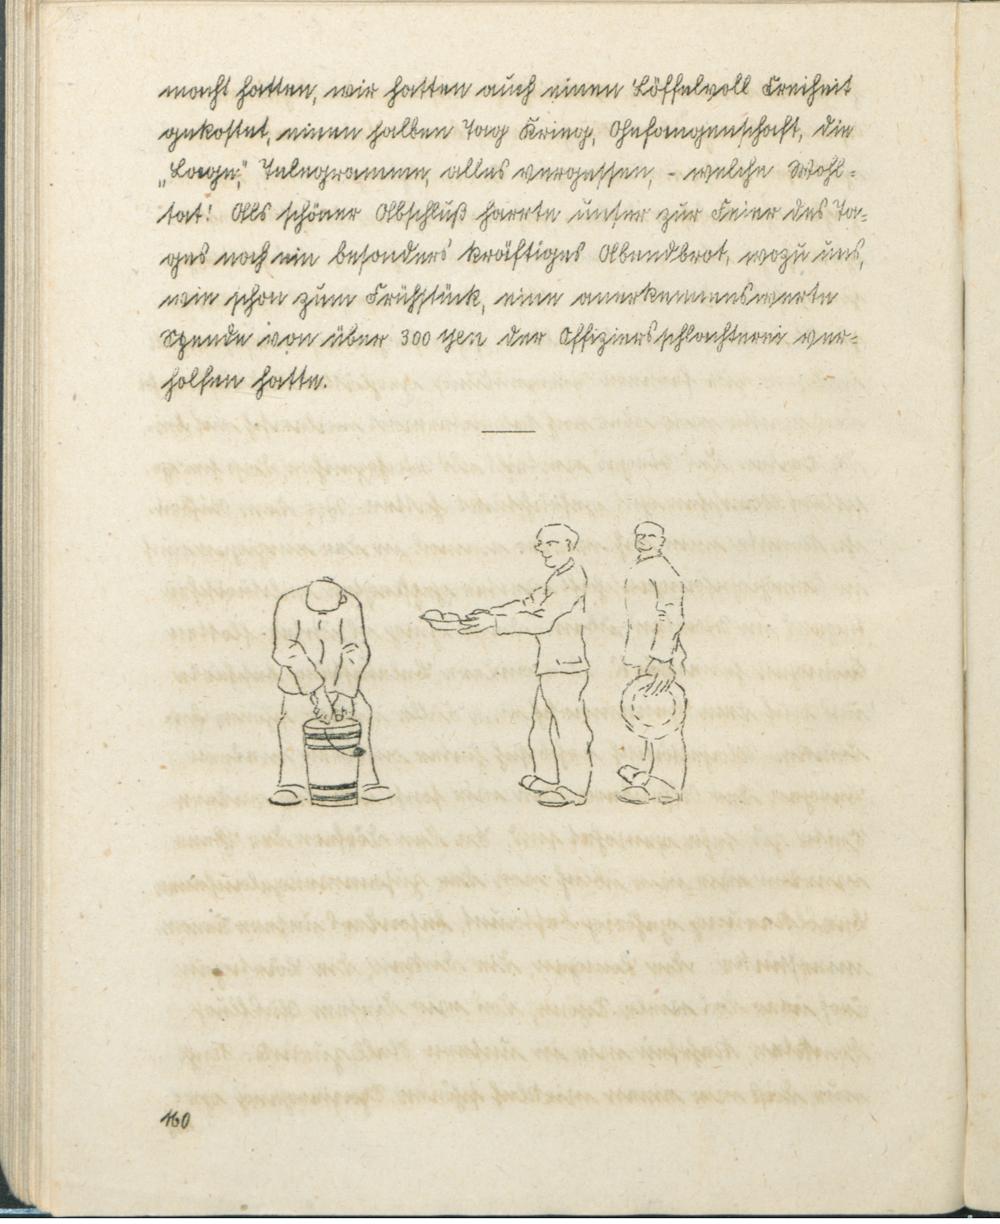 macht hatten, wir hatten auch einen Löffelvoll Freiheit
gekostet, einen halben Tag Krieg, Gefangenschaft, die
„Lage“, Telegramme, alles vergessen, - welche Wohl-
tat! Als schöner Abschluß harrte unser zur Feier des Ta-
ges noch ein besonders kräftiges Abendbrot, wozu uns,
wie schon zum Frühstück, eine anerkennenswerte
Spende von über 300 Yen der Offiziersschlachterei ver-
holfen hatte.
160